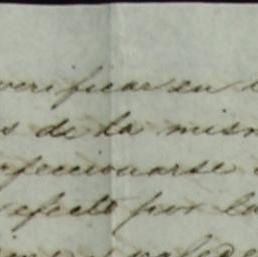 verificar su
s de la mism
nfeccionarse
efecto por la